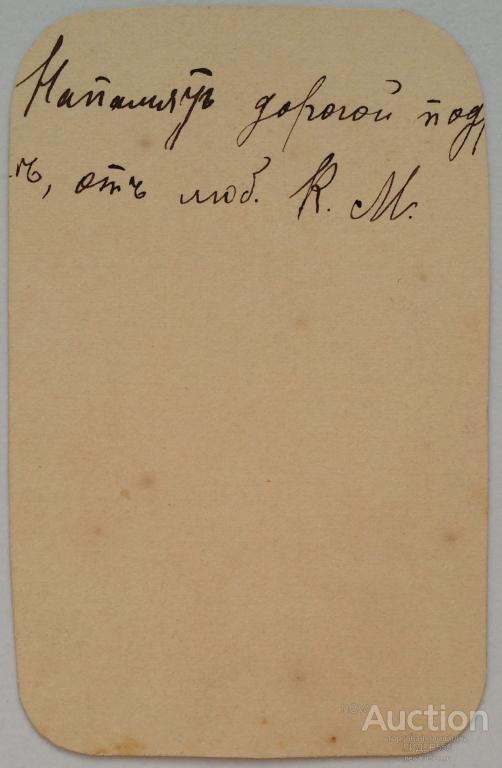 Напамять дорогой под
ъ, отъ люб. К. М.
Auction